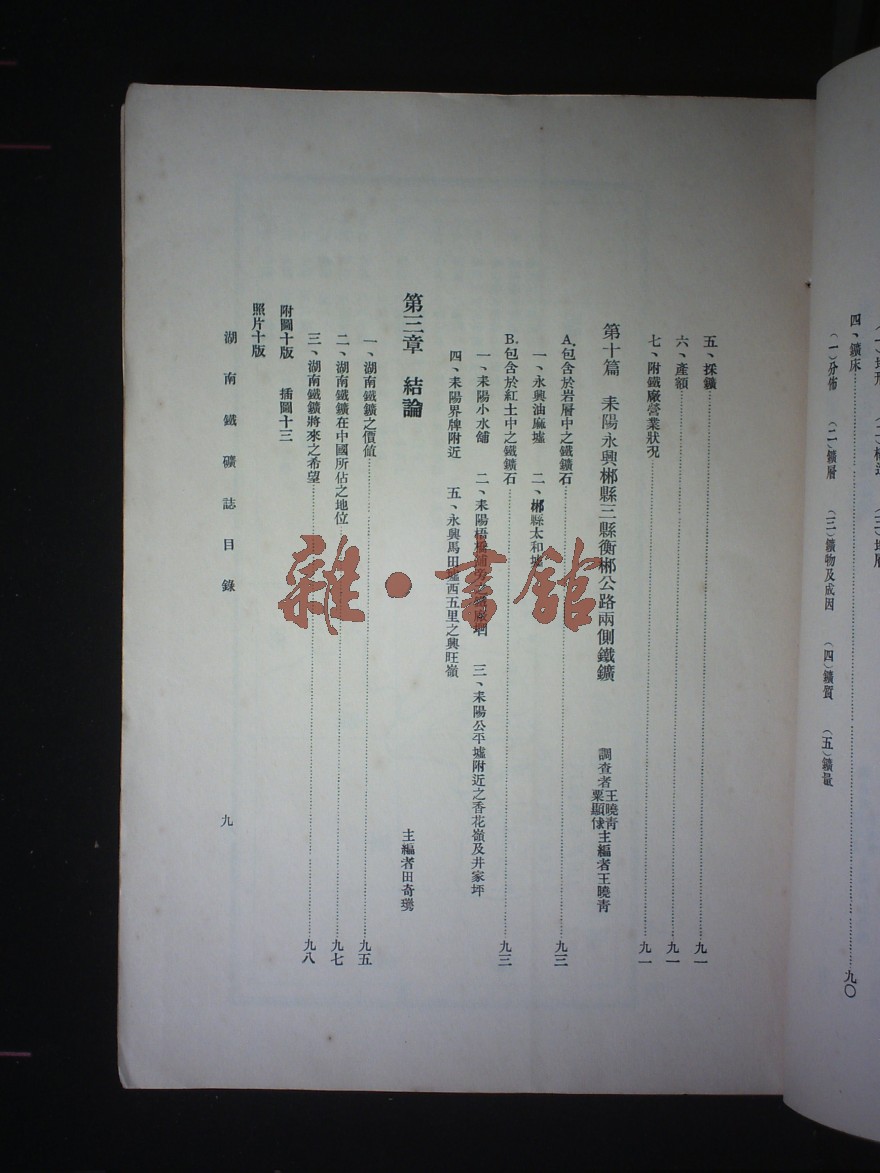 四、鑛床……九〇
(一)分佈 (二)鑛層 (三)鑛物及成因 (四)鑛質 (五)鑛量
五、採鑛……九一
六、產額……九一
七、附鐵廠營業狀况……九一
第十篇 耒陽永興郴縣三縣衡郴公路兩側鐵鑛 調查者王曉青 粟顯倈 主編者王曉青
A.包含於岩層中之鐵鑛石……九三
一、永興油麻墟 二、郴縣太和墟
B.包含於紅土中之鐵鑛石……九三
一、耒陽小水舖 二、耒陽梧橋 三、耒陽公平墟附近之香花嶺及井家坪
四、耒陽界牌附近 五、永興馬田墟西五里之興旺嶺
第三章 結論 主編者田奇㻪
一、湖南鐵鑛之價値……九五
二、湖南鐵鑛在中國所佔之地位……九七
三、湖南鐵鑛將來之希望……九八
附圖十版 插圖十三
照片十版
湖南鐵礦誌目錄 九
雜·書館